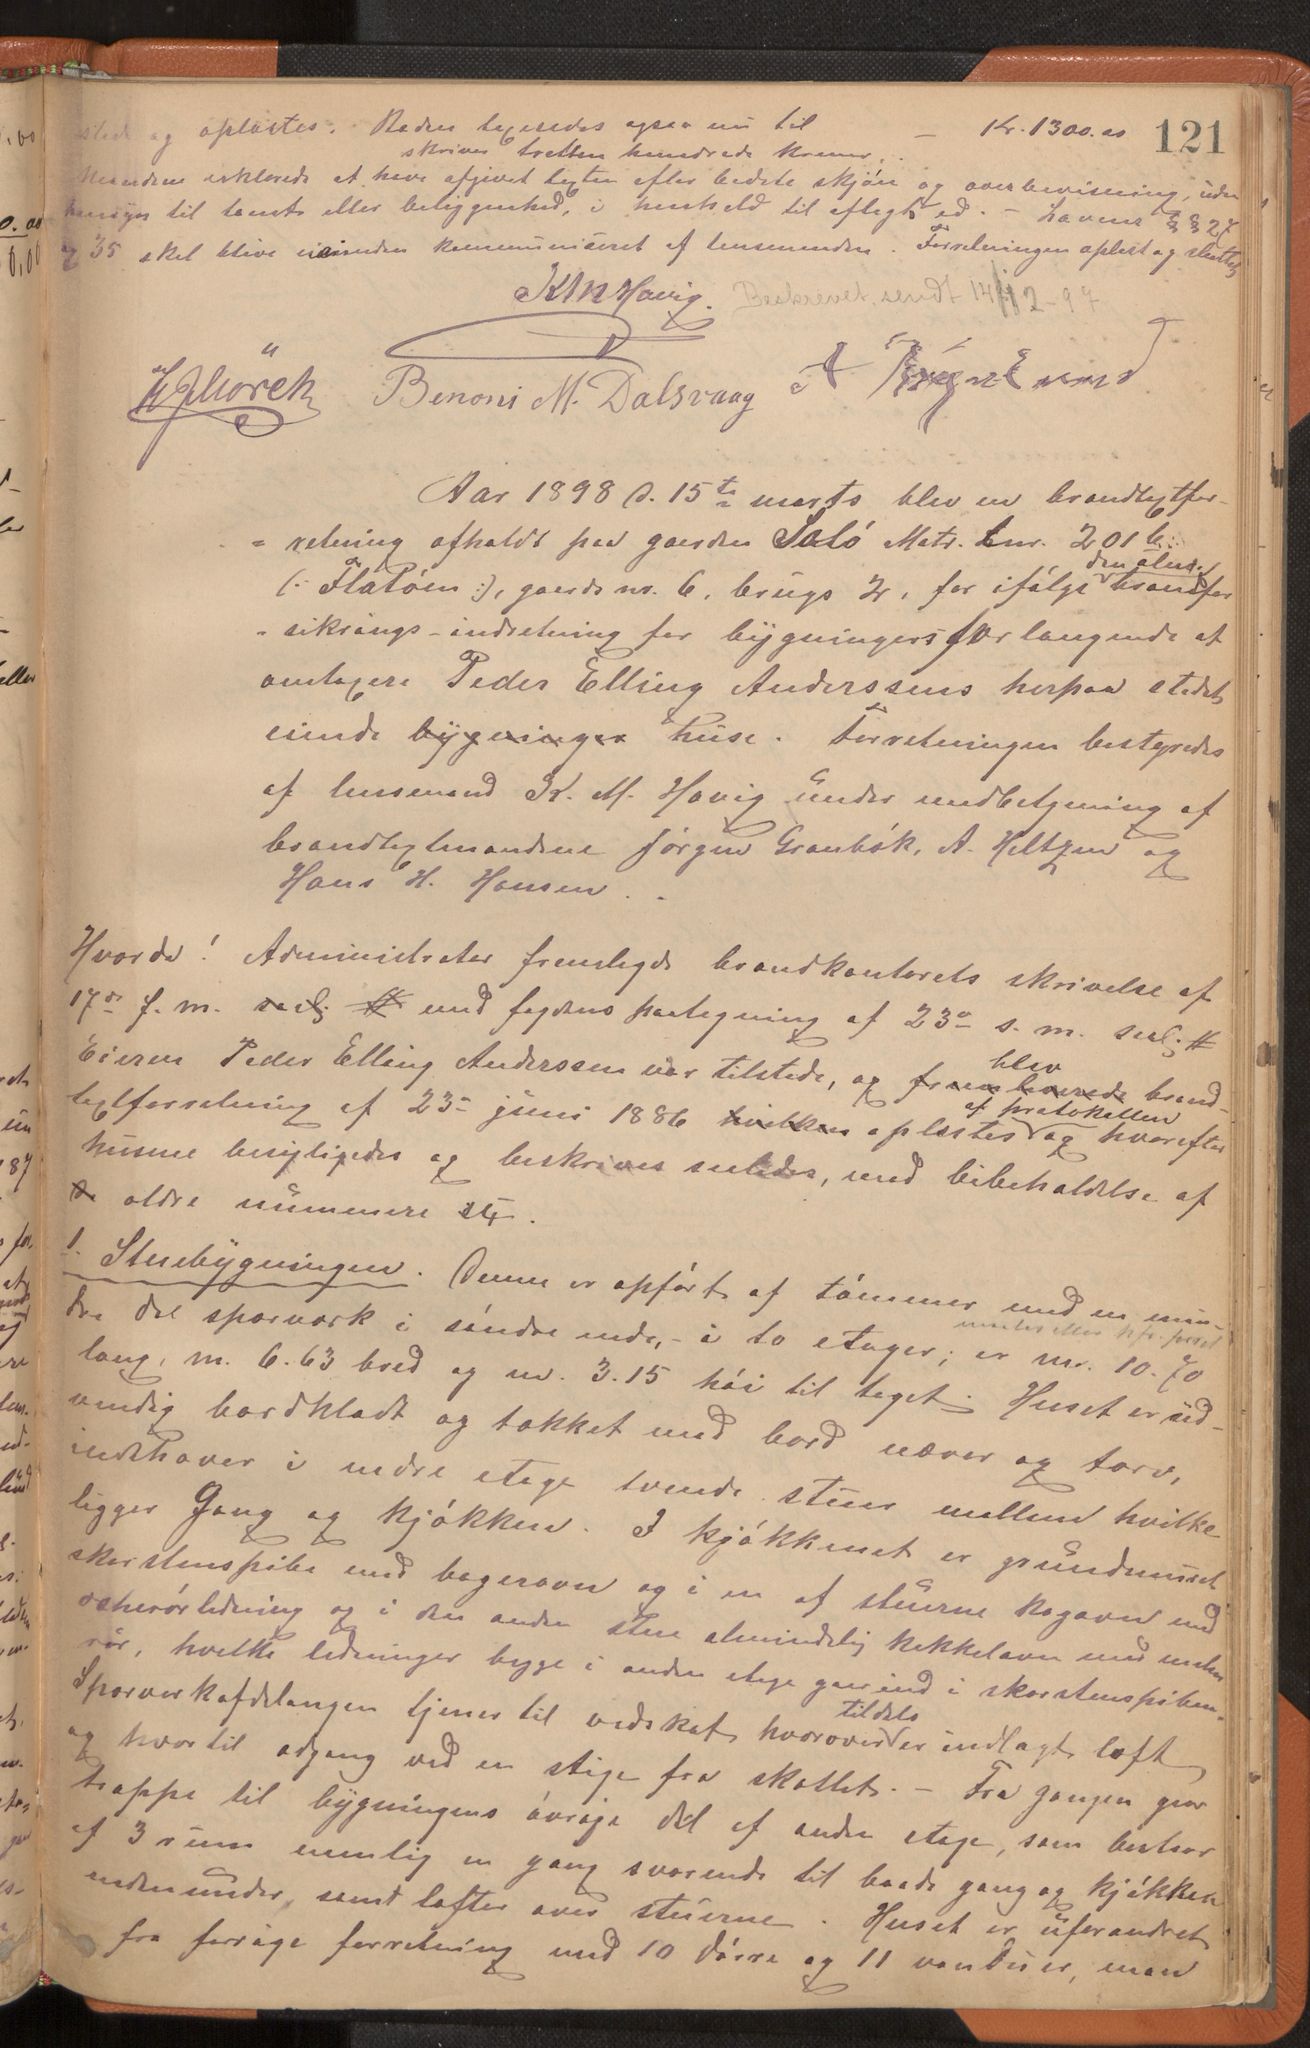 121
sted og oplæstes. Boden taxeredes ogsaa nu til — Kr. 1300.00
skriver tretten hundrede kroner.
Mændene erklærede at have afgivet taxten efter bedste skjøn og overbevisning, uden
hensyn til tomt eller beliggenhed, i henhold til aflagt ed. – Lovens §§ 27
og 35 skal blive eieren kommuniceret af lensmanden. Forretningen oplæst og sluttet
K M Havig. Beskrevet, sendt 14/12-97
Benoni M. Dalsvaag
Aar 1898 d. 15de marts blev en brandtaxtfor-
retning afholdt paa gaarden Sulø Matr. Lnr. 201 b.
(: Flatøen :), gaards nr. 6, brugs 2, for ifølge den alm. brandfor
sikrings-indretning for bygningers forlangende at
omtaxere Peder Elling Anderssens herpaa stedet
eiende bygninger huse. Forretningen bestyredes
af lensmand K. M. Havig under medbetjening af
brandtaxtmændene Jørgen Granbøk, A. Heltzen og
Hans H. Hansen.
Hvorda! Administrator fremlagde brandkontorets skrivelse af
17de f. m. med fogdens paategning af 23de s. m.
Eieren Peder Elling Anderssen var tilstede, og fremleverede blev brand-
taxtforretning af 23de juni 1886 hvilken oplæstes af protokollen og hvorefter
husene besigtigedes og beskrives saaledes, med bibeholdelse af
ældre nummere
1. Stuebygningen. Denne er opført af tømmer med en min-
dre del sporverk i søndre ende, – i to etager; er m. 10.70
lang, m. 6.63 bred og m. 3.15 høi til taget. Huset er ud-
vendig bordklædt og tækket med bord næver og torv,
indehaver i nedre etage tvende stuer mellem hvilke
ligger Gang og kjøkken. I kjøkkenet er grundmuret
skorstenspibe med bagerovn og i en af stuerne kogovn med
rørledning og i den anden stue almindelig kakkelovn med
rør, hvilke ledninger begge i anden etage gaar ind i skorstenspiben.
Sporverkafdelingen tjener til vedskot, hvorover tildels er indlagt loft
og hvortil adgang ved en stige fra skottet. – Fra gangen gaar
trappe til bygningens øvrige del af anden etage, som bestaar
af 3 rum nemlig en gang svarende til baade gang og kjøkken
nedenunder, samt lofter over stuerne. Huset er uforandret
fra forrige forretning med 10 dørre og 11 vinduer, men